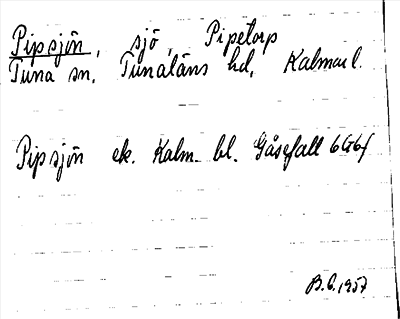 Pipsjön, sjö, Pipetorp
Tuna sn, Tunaläns hd, Kalmar l.
Pipsjön ek. Kalm. bl. Gåsefall 6G6f
B.E. 1957